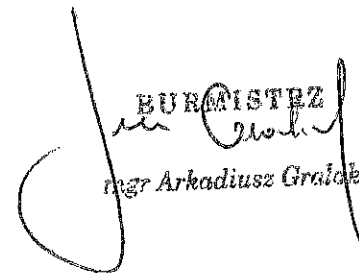 BURMISTRZ
mgr Arkadiusz Gralak